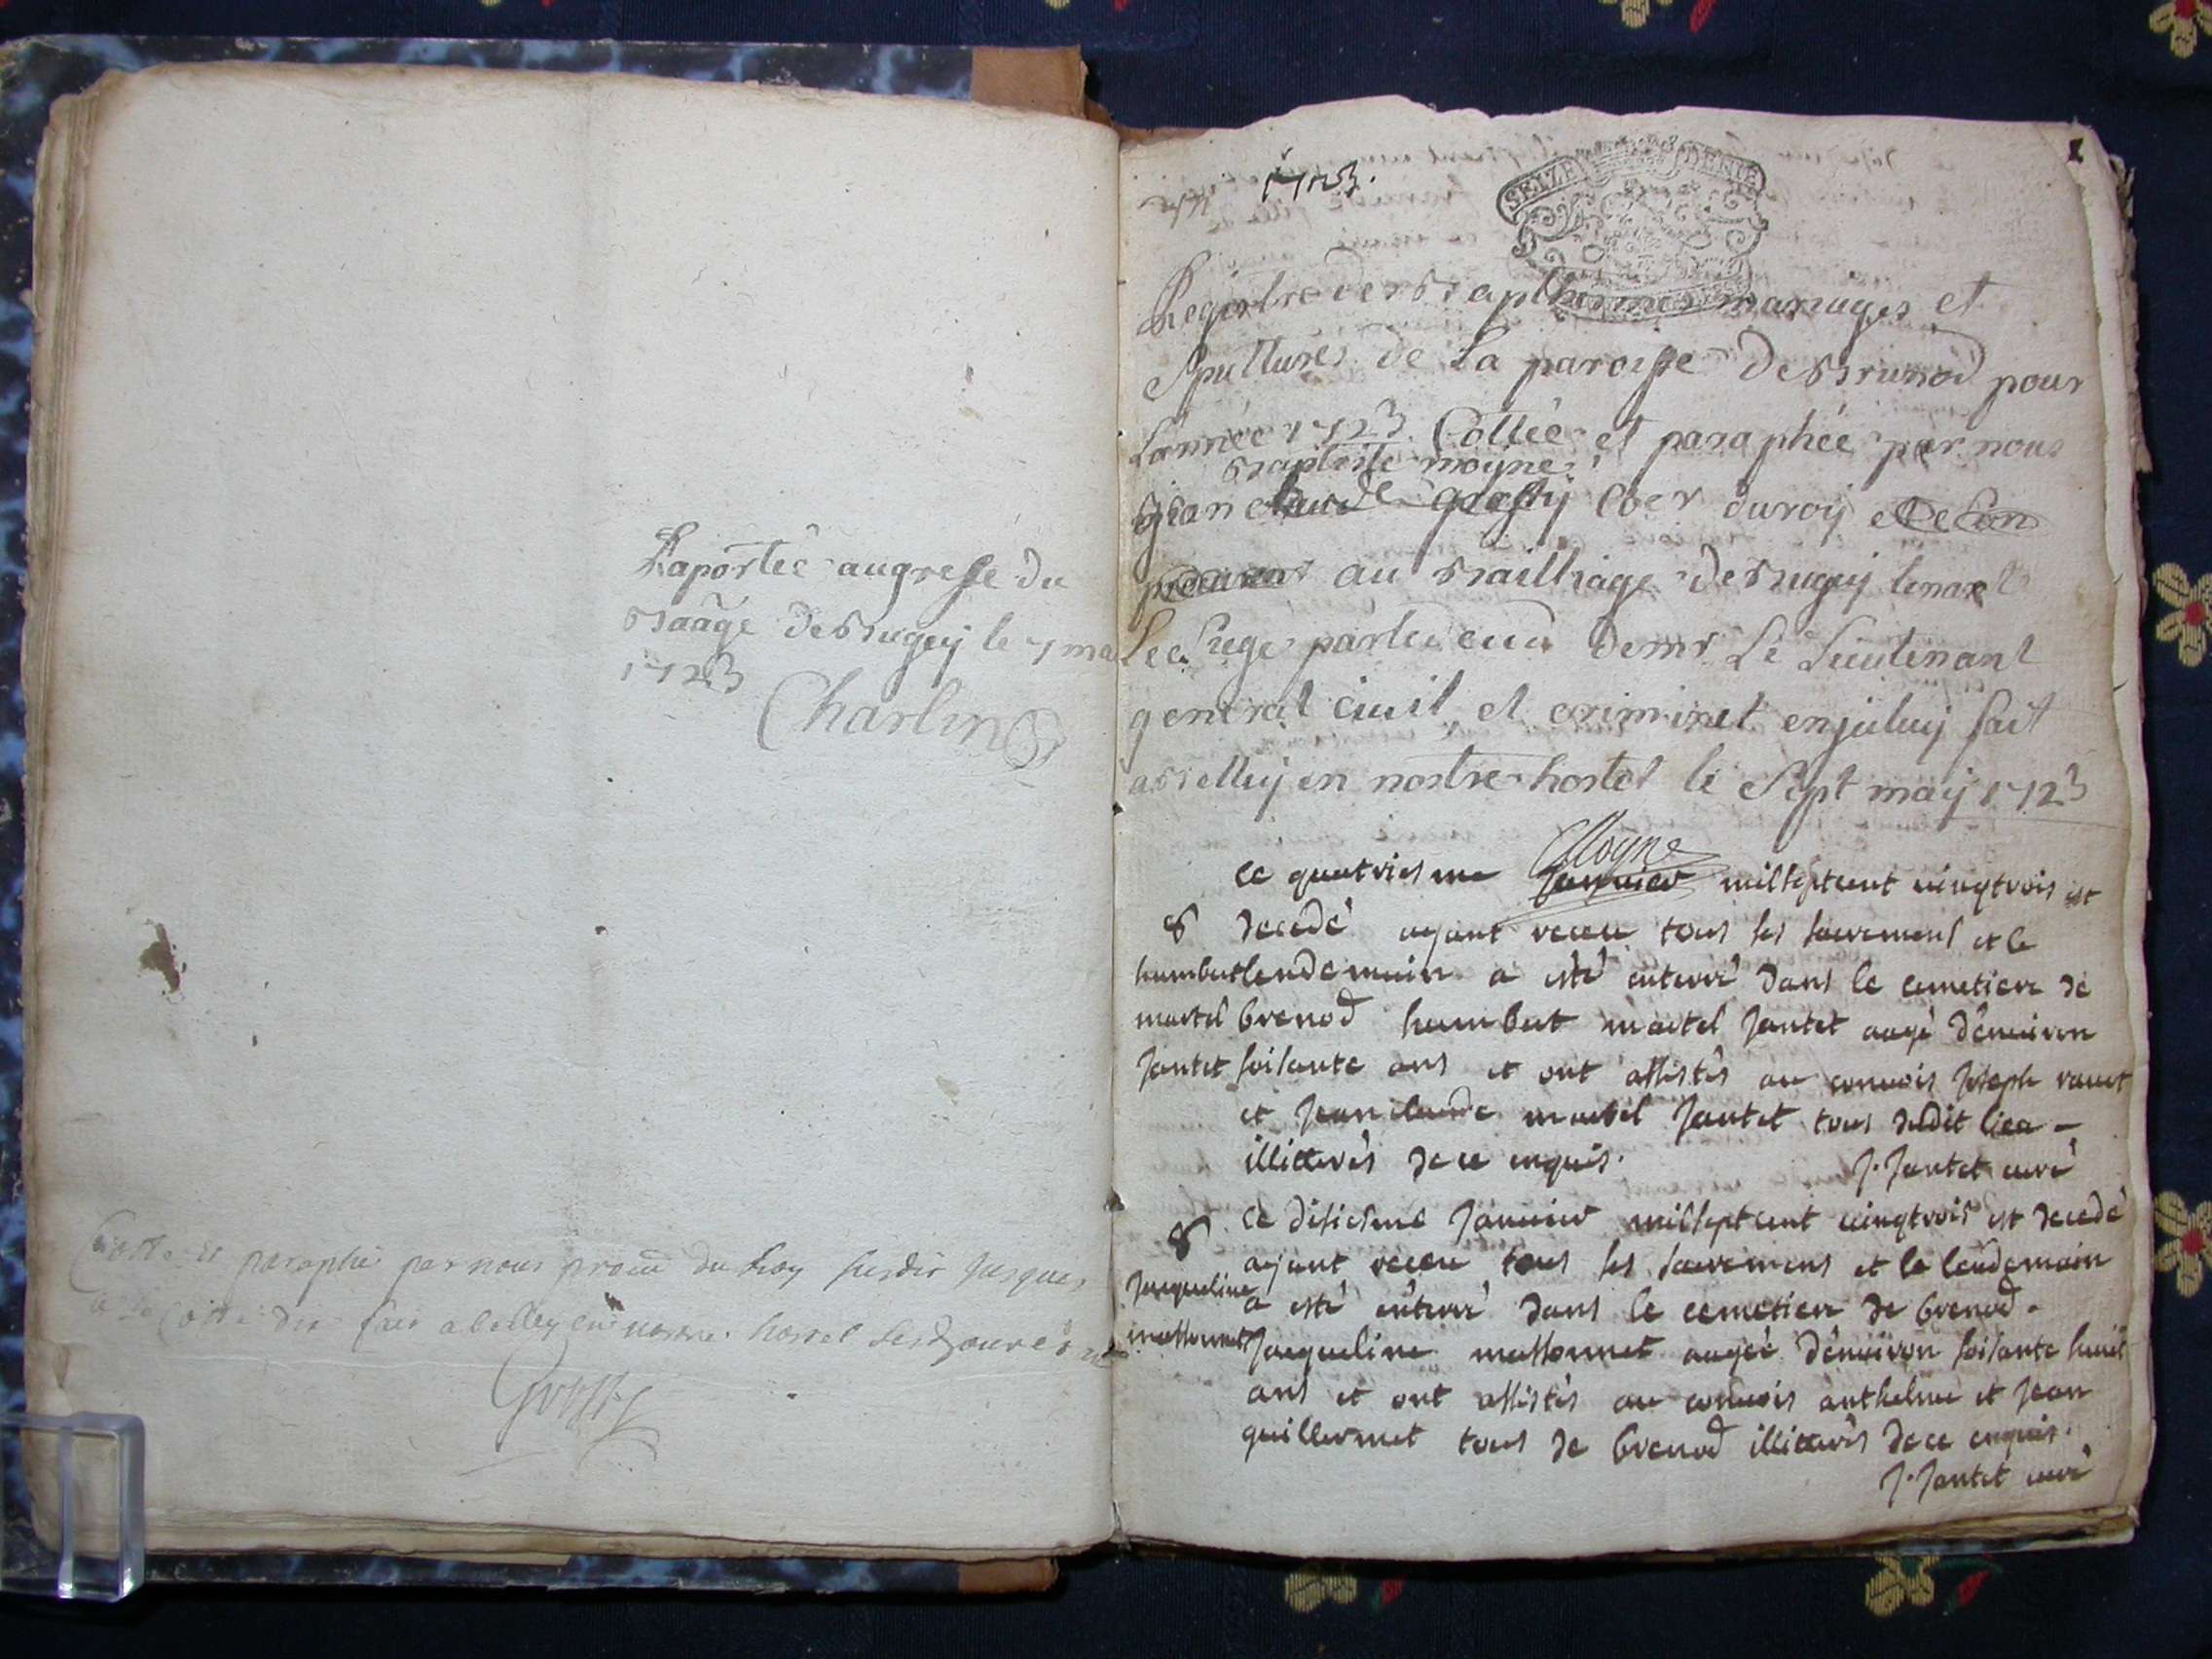 Raportée au greffe du
Baãge de Bugey le 7 ma
1723
Charlin
Cotté et paraphé par nous procu du Roy susdit jusques
a la Cotte dix fait a belley en nostre hostel les jour et
Grossy
1723.
SEIZE DENIE
Registre des Bapthemes mariages et
Spultures de La paroisse de Brunod pour
Lannée 1723 Cottée et paraphée par nous
Baptiste moyne
Jean claude grossy Coer du roy et de son
procureur au Bailliage de Bugey
Le Siege par Mr Le Lieutenant
general civil et criminel enjceluy fait
a Belley en nostre hostel le Sept may 1723
Moyne
ce quatriesme Januier milseptcent uingtrois est
8 decedé ayant receu tous ses sacremens et le
humbert lendemain a esté enterré dans le cemetiere de
martel brenod humbert martel Jantet aagé d'enuiron
Jantet soisante ans et ont assistés au conuois Joseph
et Jean claude martel Jantet tous dudit lieu –
illitterés de ce enquis. J. Jantet curé
8 ce disiesme Januier milseptcent uingtrois est decedé
ayant receu tous ses sacremens et le lendemain
Jacqueline a esté enterré dans le cemetiere de brenod.
massonnet Jacqueline massonnet aagée d'enuiron soisante huit
ans et ont assistés au conuois anthelme et Jean
guillermet tous de brenod illitterés de ce enquis.
J. Jantet curé